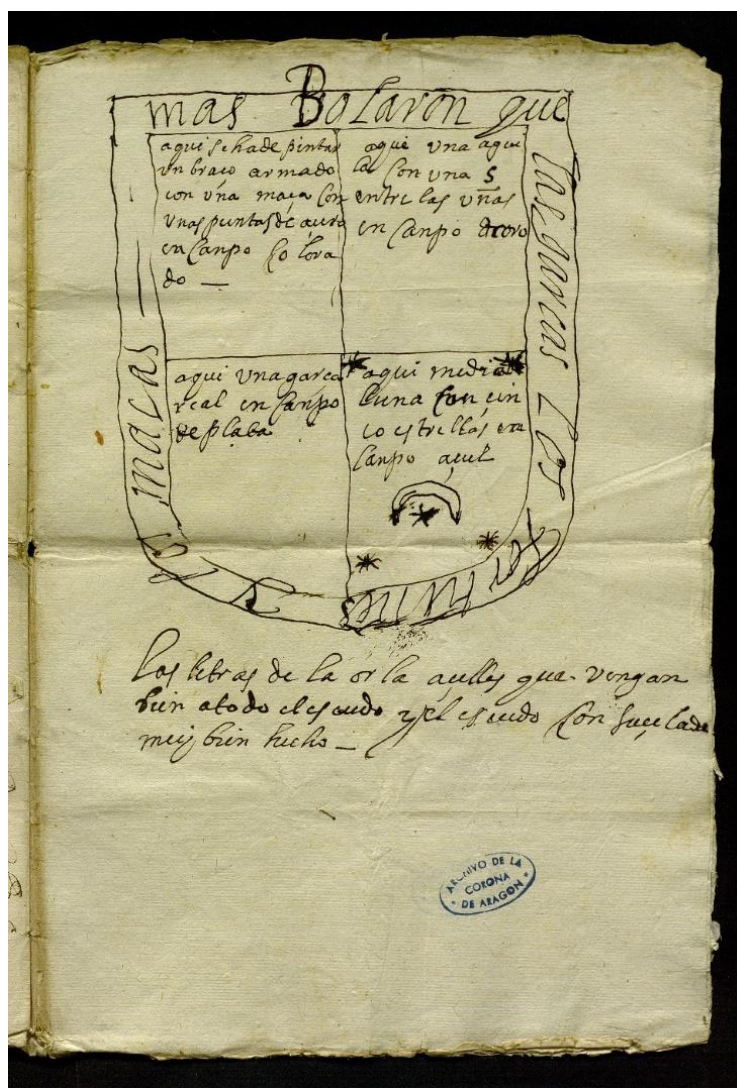 mas Bolaron que
las garcas Los
fortunes
y Las
macas —
aqui se ha de pintar
un braço armado
con vña maça con
vnas puntas de açero
en canpo Colora
do —
aqui vna agui
la con vna S
entre las vñas
en canpo de oro
aqui vna garça
real en canpo
de plata
aqui media
luna con çin
co estrellas en
canpo açul
Las letras de la orla açulles que vengan
bien a todo el escudo y el escudo con su çelada
muy bien hecho —
ARCHIVO DE LA
CORONA
DE ARAGON